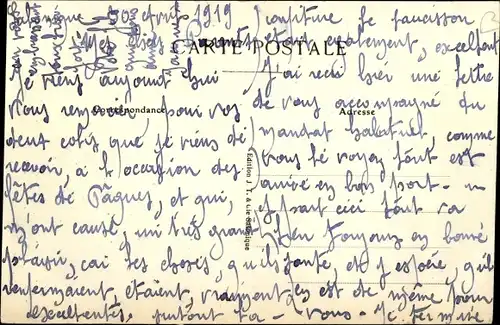 Salonique 30 avril 1919
CARTE POSTALE
Correspondance
Adresse
Edition J. T. & Cie Salonique
Je viens aujourd'hui
vous remercier pour vos
deux colis que je viens de
recevoir, à l'occasion des
fêtes de Pâques, et qui,
m'ont causé, un très grand
plaisir, car les choses, qu'ils
renfermaient, étaient, vraiment
excellentes, surtout la
confiture le saucisson
également, excellent
J'ai reçu hier une lettre
de vous accompagné du
mandat comme
vous le voyez tout est
arrivé en bon port
part ici tout va
bien toujours en bonne
santé, et j'espère, qu'il
en est de même pour
vous. Je termine